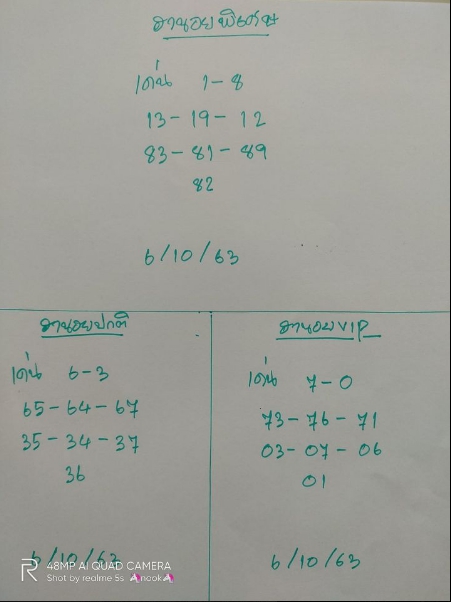 ฮานอยพิเศษ
เด่น 1-8
13-19-12
83-81-89
82
6/10/63
ฮานอยปกติ
เด่น 6-3
65-64-67
35-34-37
36
6/10/63
ฮานอยVIP
เด่น 7-0
73-76-71
03-07-06
01
6/10/63
48MP AI QUAD CAMERA
Shot by realme 5s AnookA